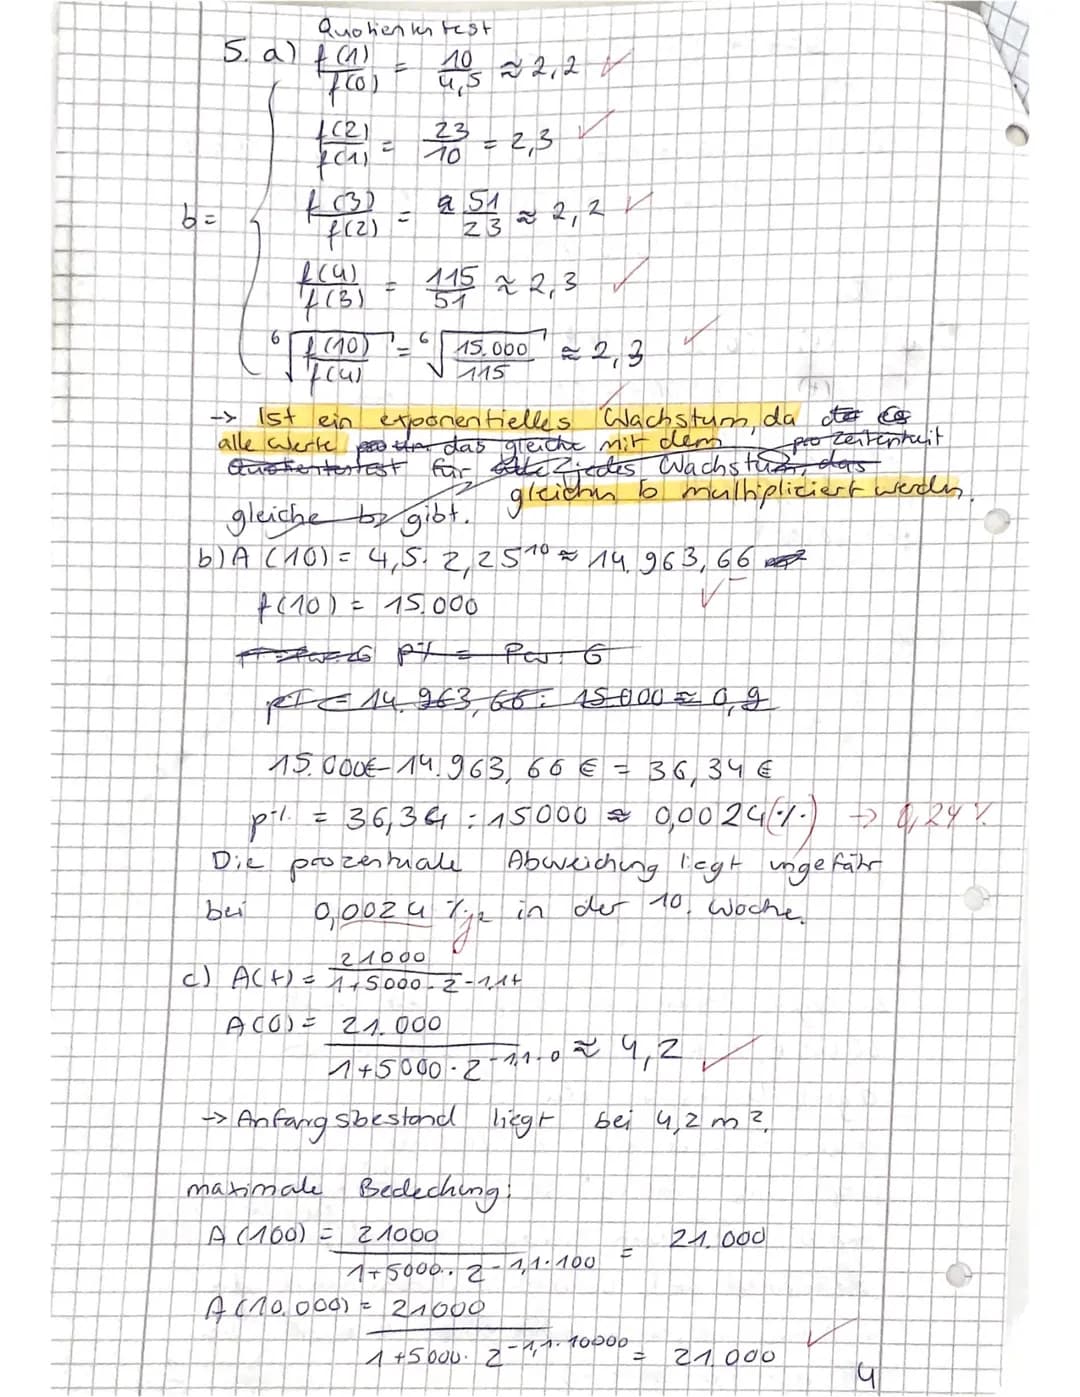 Quotientest
5. a) f(1)/f(0) = 10/4,5 ≈ 2,2 ✓
f(2)/f(1) = 23/10 = 2,3 ✓
b = f(3)/f(2) = 51/23 ≈ 2,2 ✓
f(4)/f(3) = 115/51 ≈ 2,3 ✓
⁶√(f(10)/f(4)) = ⁶√(15.000/115) ≈ 2,3 ✓
-> Ist ein exponentielles Wachstum, da
alle Werte das gleiche mit dem pro Zeiteinheit
Quotientest für jedes Wachstum, das
gleichen b multipliziert werden.
gleiche b gibt.
b) A(10) = 4,5 · 2,25¹⁰ ≈ 14.963,66
✓
f(10) = 15.000
p% = Pw : G
p% = 14.963,66 : 15000 ≈ 0,9
15.000€ - 14.963,66 € = 36,34 €
p% = 36,34 : 15000 ≈ 0,0024 (%) -> 0,24 %
Die prozentuale Abweichung liegt ungefähr
bei 0,0024 % in der 10. Woche.
c) A(t) = 21000/(1+5000·2^-1,1t)
A(0) = 21.000/(1+5000·2^-1,1·0) ≈ 4,2 ✓
-> Anfangsbestand liegt bei 4,2 m².
maximale Bedeckung:
A(100) = 21000/(1+5000·2^-1,1·100) = 21.000
A(10.000) = 21000/(1+5000·2^-1,1·10000) = 21.000 ✓
4